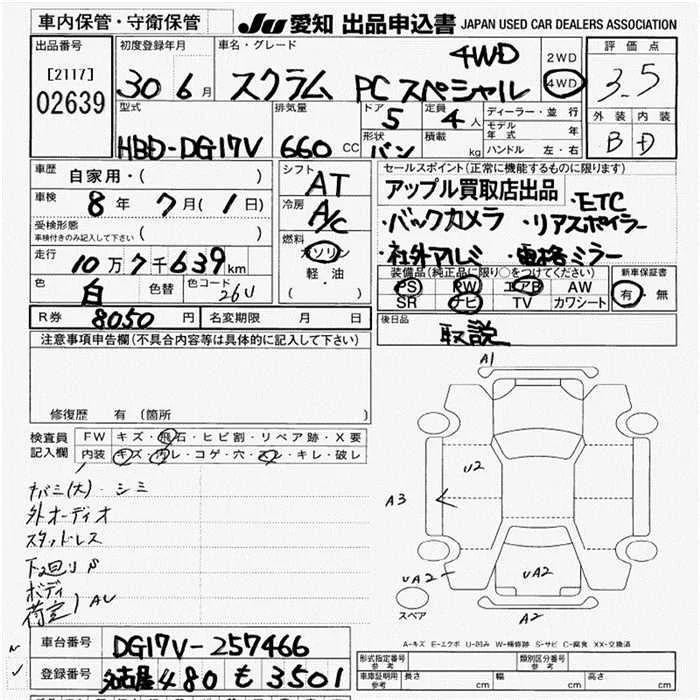 車内保管・守衛保管
JU 愛知 出品申込書 JAPAN USED CAR DEALERS ASSOCIATION
出品番号
[2117]
02639
初度登録年月
30 6月
車名・グレード
スクラム PCスペシャル 4WD
2WD
4WD
評価点
3.5
外装 内装
B D
型式
HBD-DG17V
排気量
660 CC
ドア
5
定員
4人
形状
バン
積載
kg
ディーラー・並行
モデル年式 年
ハンドル 左・右
車歴
自家用・( )
車検
8年 7月( 1日)
受検形態
車検付きのみ記入して下さい ( )
走行
10万7千639km
色
白
色替
色コード
26U
シフト
AT
冷房
A/C
燃料
ガソリン
軽油
( ・ )
セールスポイント(正常に機能するものに限ります)
アップル買取店出品 ・ETC
・バックカメラ ・リアスポイラー
・社外アルミ ・電格ミラー
装備品(純正品に限り○をつけてください)
PS PW エアB AW
SR ナビ TV カワシート
新車保証書
有・無
R券 8050円 名変期限 月 日
後日品
取説
注意事項申告欄(不具合内容等は具体的に記入して下さい)
修復歴 有 (箇所 )
検査員記入欄
FW キズ・飛石・ヒビ割・リペア跡・X要
内装 キズ・汚レ・コゲ・穴・スレ・キレ・破レ
シミ
外オーディオ
スタッドレス
下回りS
ボディ
荷室
A1
U2
A3
UA2
UA2
A2
スペア
A-キズ E-エクボ U-凹み W-補修跡 S-サビ C-腐食 XX-交換済
車台番号
DG17V-257466
登録番号
名古屋 480 も 3501
形式指定番号
参考
類別区分番号
参考
車庫証明用
参考
長さ cm 幅 cm 高さ cm